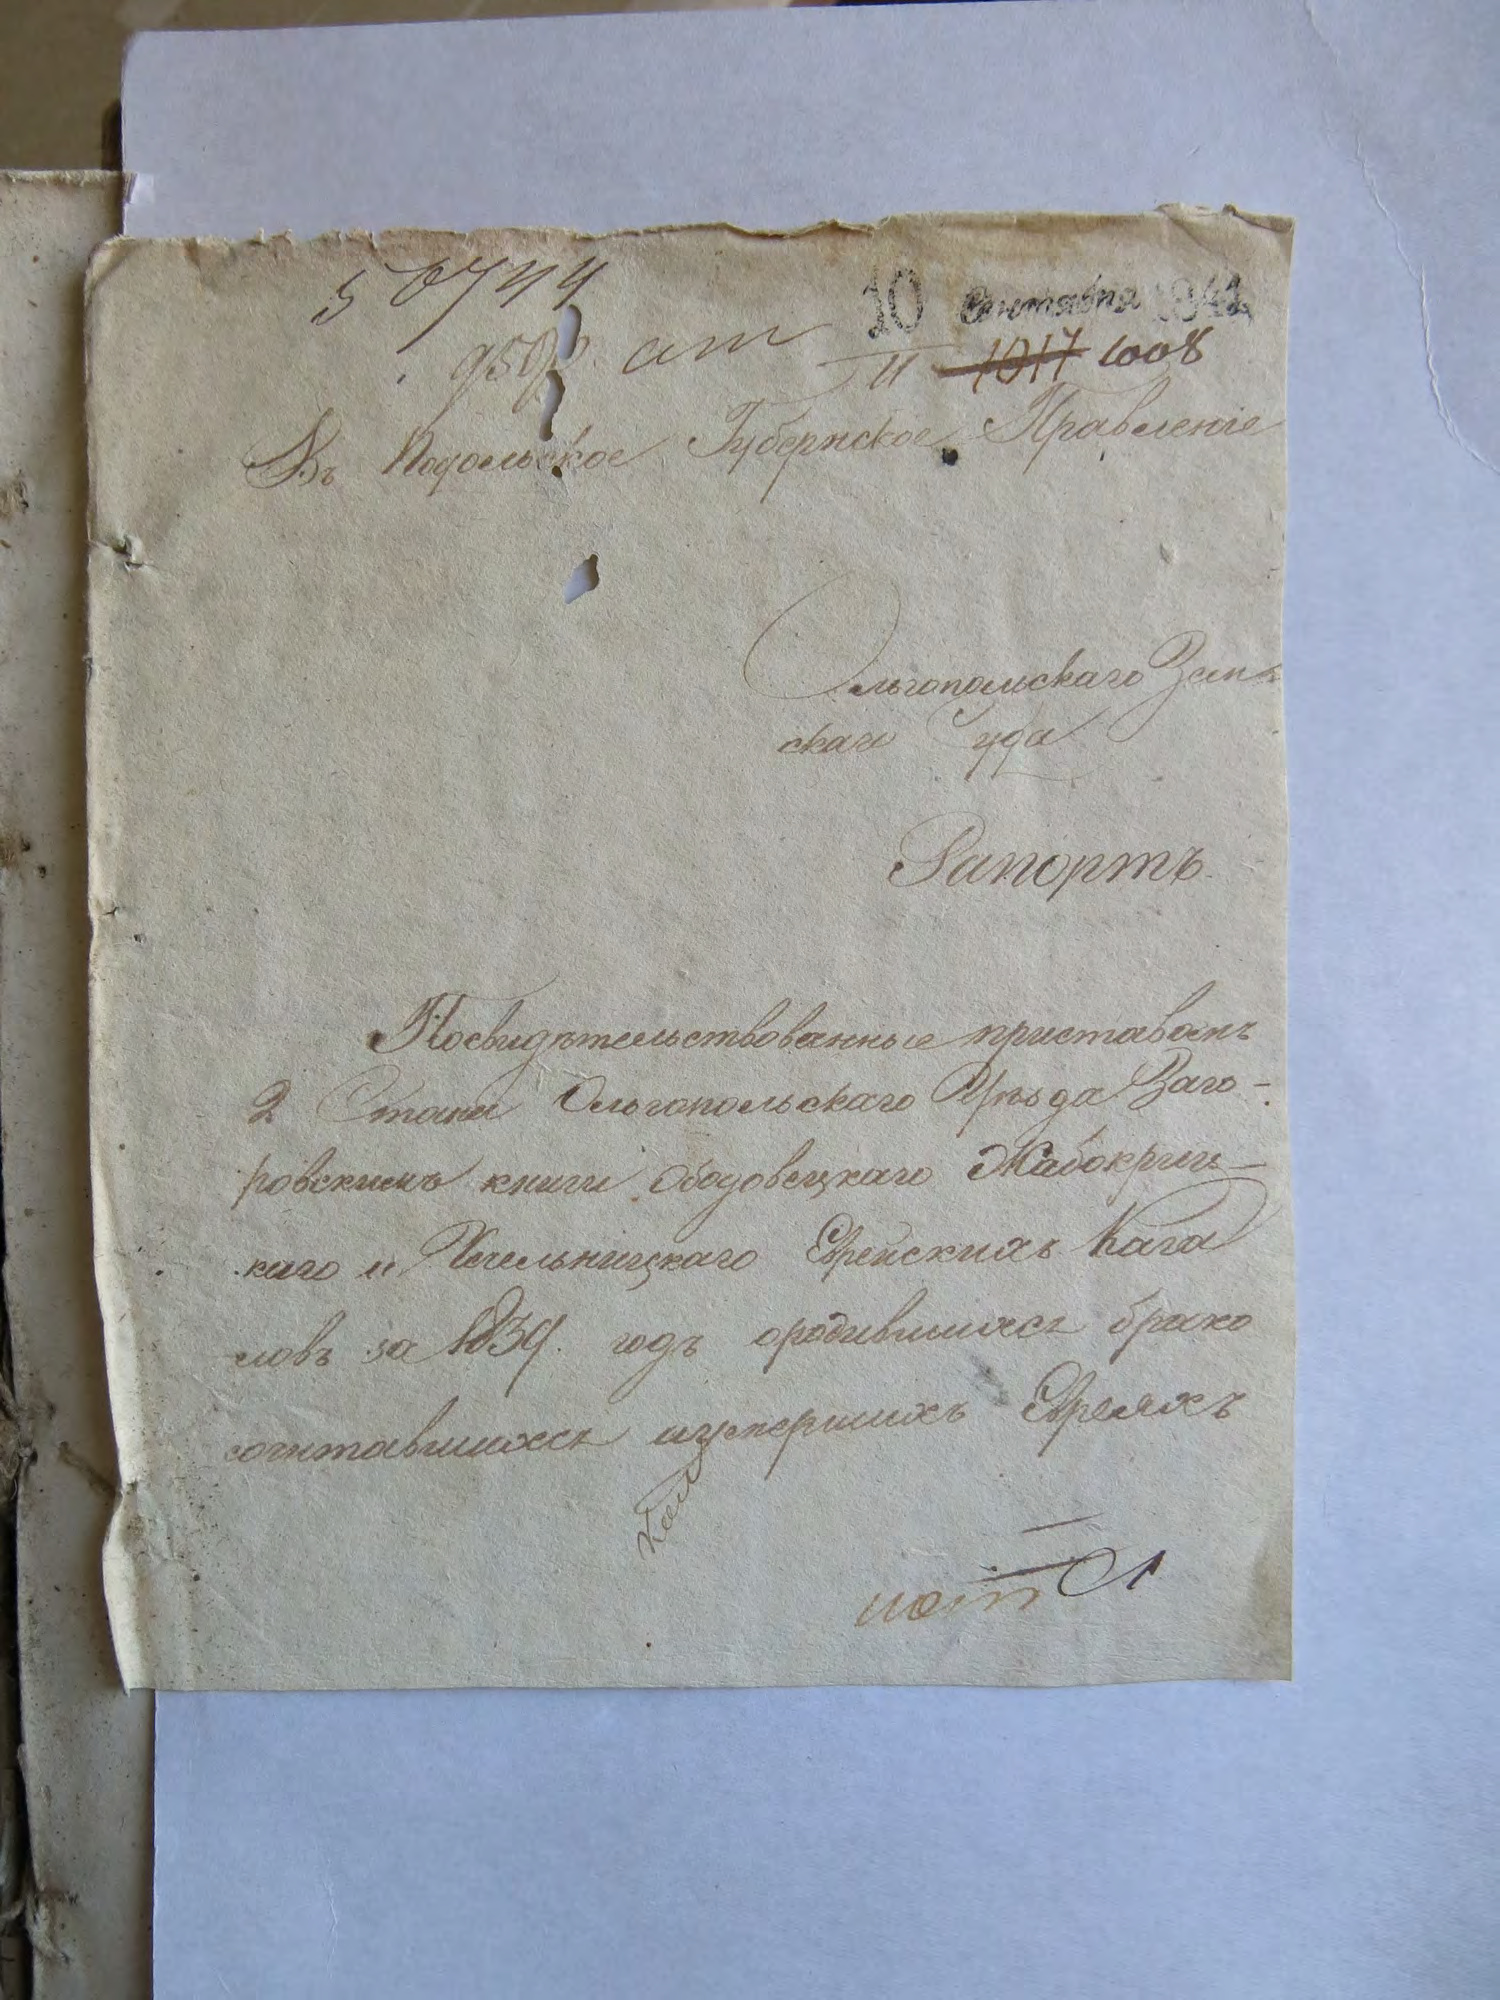 50744
10 Сентября 1841
11 1017 1008
Въ Подольское Губернское Правленіе
Ольгопольскаго Зем-
скаго Суда
Рапортъ.
Посвидѣтельствованные приставомъ
2 Стана Ольгопольскаго Уѣзда Заго-
ровскимъ книги Ободовецкаго Жабокриц-
каго и Хмельницкаго Еврейскихъ Кага
ловъ за 1839. годъ ородившихся брако
сочитавшихся иумершихъ Евреяхъ